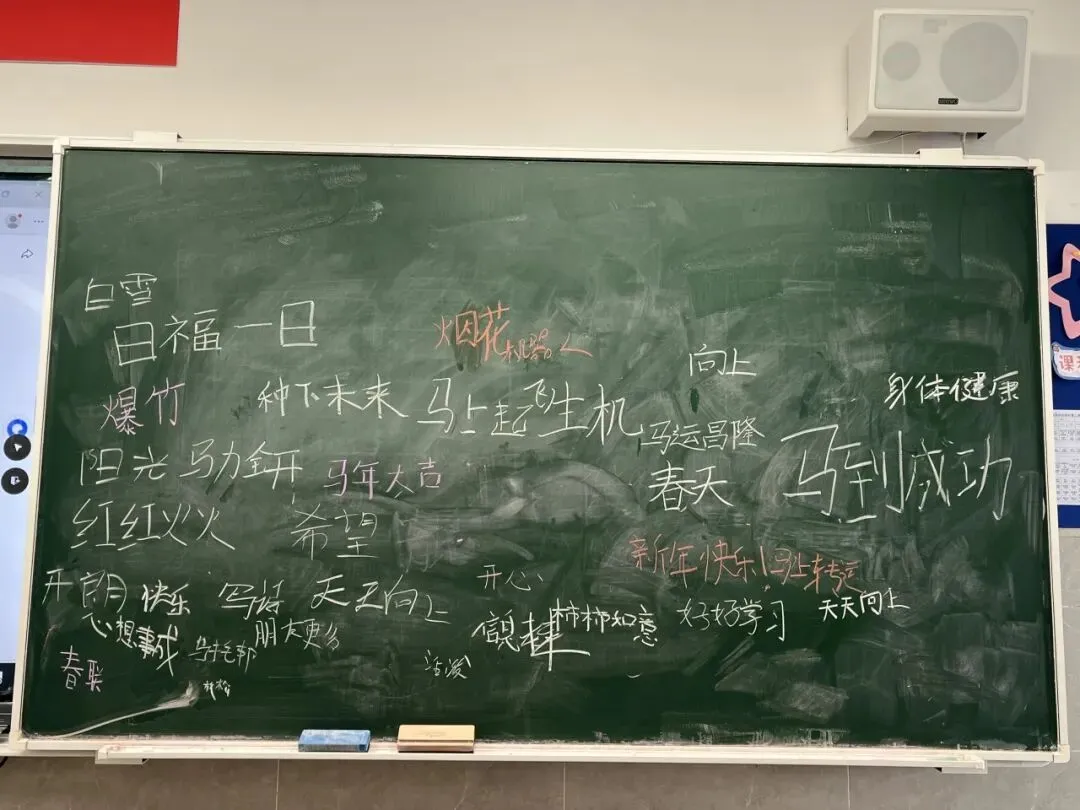 白雪
日福一日
烟花
机器人
向上
身体健康
爆竹
种下未来
马上起飞
生机
马运昌隆
阳光
马力全开
马年大吉
春天
马到成功
红红火火
希望
新年快乐！马上转运
开朗
快乐
写诗
天天向上
开心
柿柿如意
好好学习
天天向上
心想事成
乌托邦
朋友更多
活泼
春联